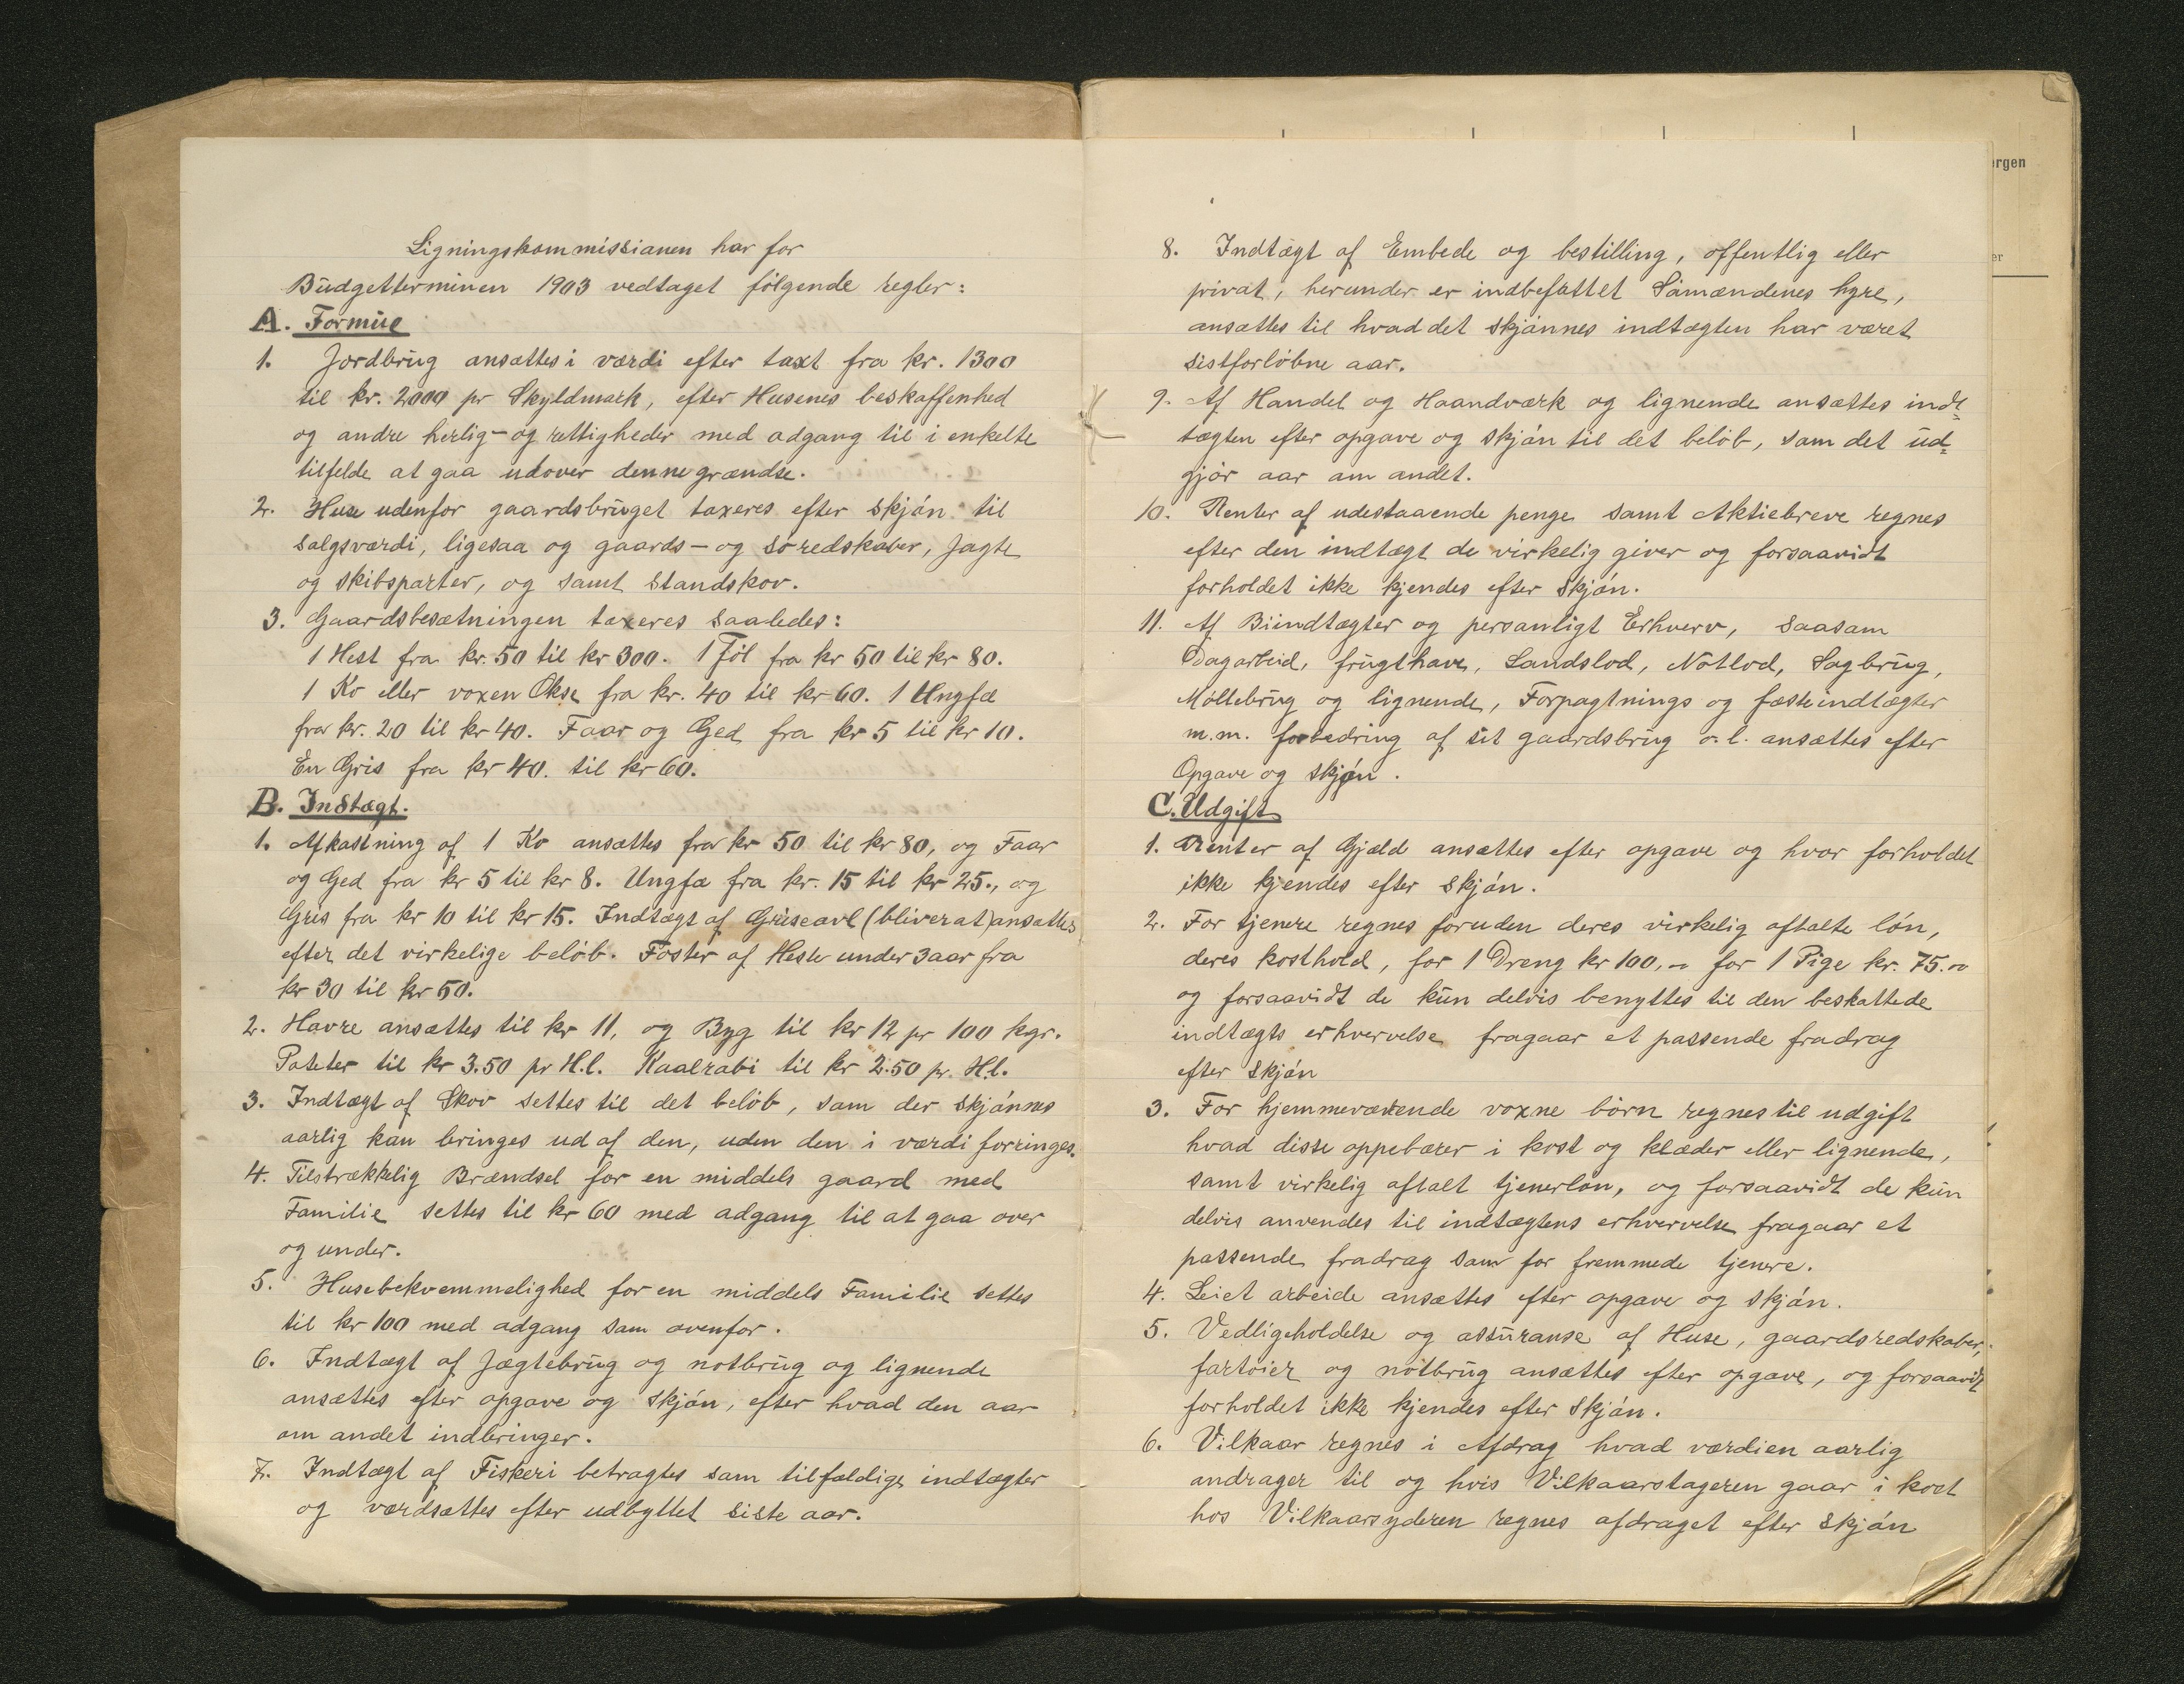 Ligningskommissionen har for
Budgetterminen 1903 vedtaget følgende regler:
A. Formue
1. Jordbrug ansættes i værdi efter taxt fra kr. 1300
til kr. 2000 pr Skyldmark, efter Husenes beskaffenhed
og andre herlig- og rettigheder med adgang til i enkelte
tilfelde at gaa udover denne grændse.
2. Huse udenfor gaardsbruget taxeres efter skjøn til
salgsværdi, ligesaa og gaards- og søredskaber, Jagte
og skibsparter, og samt Standskov.
3. Gaardsbesætningen taxeres saaledes:
1 Hest fra kr. 50 til kr 300. 1 Føl fra kr 50 til kr 80.
1 Ko eller voxen Okse fra kr. 40 til kr 60. 1 Ungfæ
fra kr. 20 til kr 40. Faar og Ged fra kr 5 til kr 10.
En Gris fra kr 40. til kr 60.
B. Indtægt.
1. Afkastning af 1 Ko ansættes fra kr 50 til kr 80, og Faar
og Ged fra kr 5 til kr 8. Ungfæ fra kr. 15 til kr 25., og
Gris fra kr 10 til kr 15. Indtægt af Griseavl (bliver at) ansættes
efter det virkelige beløb. Foster af Heste under 3 aar fra
kr 30 til kr 50.
2. Havre ansættes til kr 11, og Byg til kr 12 pr 100 kgr.
Poteter til kr 3.50 pr H.l. Kaalrabi til kr 2.50 pr. H.l.
3. Indtægt af Skov settes til det beløb, som der skjønnes
aarlig kan bringes ud af den, uden den i værdi forringes.
4. Tilstrækkelig Brændsel for en middels gaard med
Familie settes til kr 60 med adgang til at gaa over
og under.
5. Husebekvemmelighed for en middels Familie settes
til kr 100 med adgang som ovenfor.
6. Indtægt af Jægtebrug og notbrug og lignende
ansættes efter opgave og skjøn, efter hvad den aar
om andet indbringer.
7. Indtægt af Fiskeri betragtes som tilfældige indtægter
og værdsættes efter udbyttet siste aar.
8. Indtægt af Embede og bestilling, offentlig eller
privat, herunder er indbefattet Sømændenes hyre,
ansættes til hvad det skjønnes indtægten har været
sistforløbne aar.
9. Af Handel og Haandværk og lignende ansættes indt=
tægten efter opgave og skjøn til det beløb, som det ud=
gjør aar om andet.
10. Renter af udestaaende penge samt Aktiebreve regnes
efter den indtægt de virkelig giver og forsaavidt
forholdet ikke kjendes efter skjøn.
11. Af Biindtægter og personligt Erhverv, saasom
Dagarbeid, frugthave, Landslod, Notlod, Sagbrug,
Møllebrug og lignende, Forpagtnings og fæsteindtægter
m.m. forbedring af sit gaardsbrug o.l. ansættes efter
Opgave og skjøn.
C. Udgift
1. Renter af Gjæld ansættes efter opgave og hvor forholdet
ikke kjendes efter skjøn.
2. For tjenere regnes foruden deres virkelig aftalte løn,
deres kosthold, for 1 Dreng kr 100.- for 1 Pige kr. 75.-
og forsaavidt de kun delvis benyttes til den beskattede
indtægts erhvervelse fragaar et passende fradrag
efter skjøn
3. For hjemmeværende voxne børn regnes til udgift
hvad disse oppebærer i kost og klæder eller lignende,
samt virkelig aftalt tjenerløn, og forsaavidt de kun
delvis anvendes til indtægtens erhvervelse fragaar et
passende fradrag som for fremmede tjenere.
4. Leiet arbeide ansættes efter opgave og skjøn.
5. Vedligeholdelse og assuranse af Huse, gaardsredskaber,
fartøier og notbrug ansættes efter opgave, og forsaavidt
forholdet ikke kjendes efter skjøn.
6. Vilkaar regnes i Afdrag hvad værdien aarlig
andrager til og hvis Vilkaarstageren gaar i kost
hos Vilkaarsyderen regnes afdraget efter skjøn
rgen
er